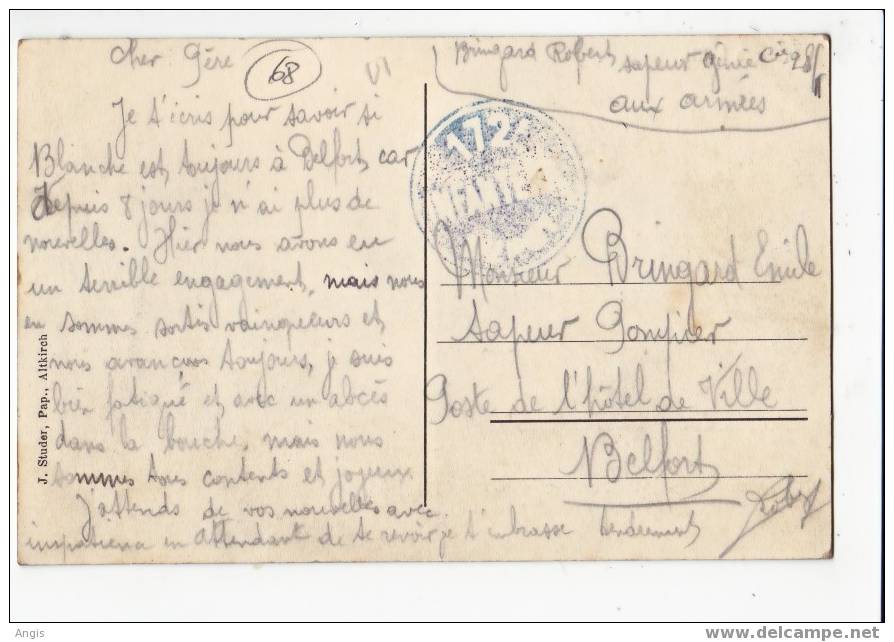 Cher Père
68
VI
Je t'écris pour savoir si
Blanche est toujours à Belfort, car
depuis 8 jours je n'ai plus de
nouvelles. Hier nous avons eu
un terrible engagement, mais nous
en sommes sortis vainqueurs et
nous avançons toujours, je suis
bien fatigué et avec un abcès
dans la bouche, mais nous
sommes tous contents et joyeux
J'attends de vos nouvelles avec
impatience en attendant de te revoir je t'embrasse tendrement
Robert
Bringard Robert
sapeur génie Cie 28/1
aux armées
172
Monsieur Bringard Emile
Sapeur Pompier
Poste de l'hôtel de Ville
Belfort
J. Studer, Pap., Altkirch
Angis
www.delcampe.net